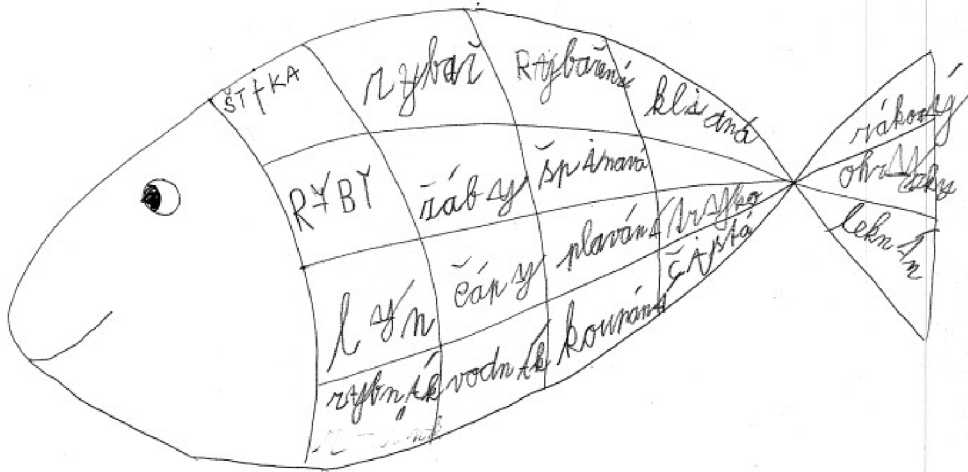 ŠTIKA
rybář
Rybaření
klidná
RYBY
žáby
špinavá
lýn
čápy
plavání
čistá
rybník
vodník
koupání
rákosy
leknín